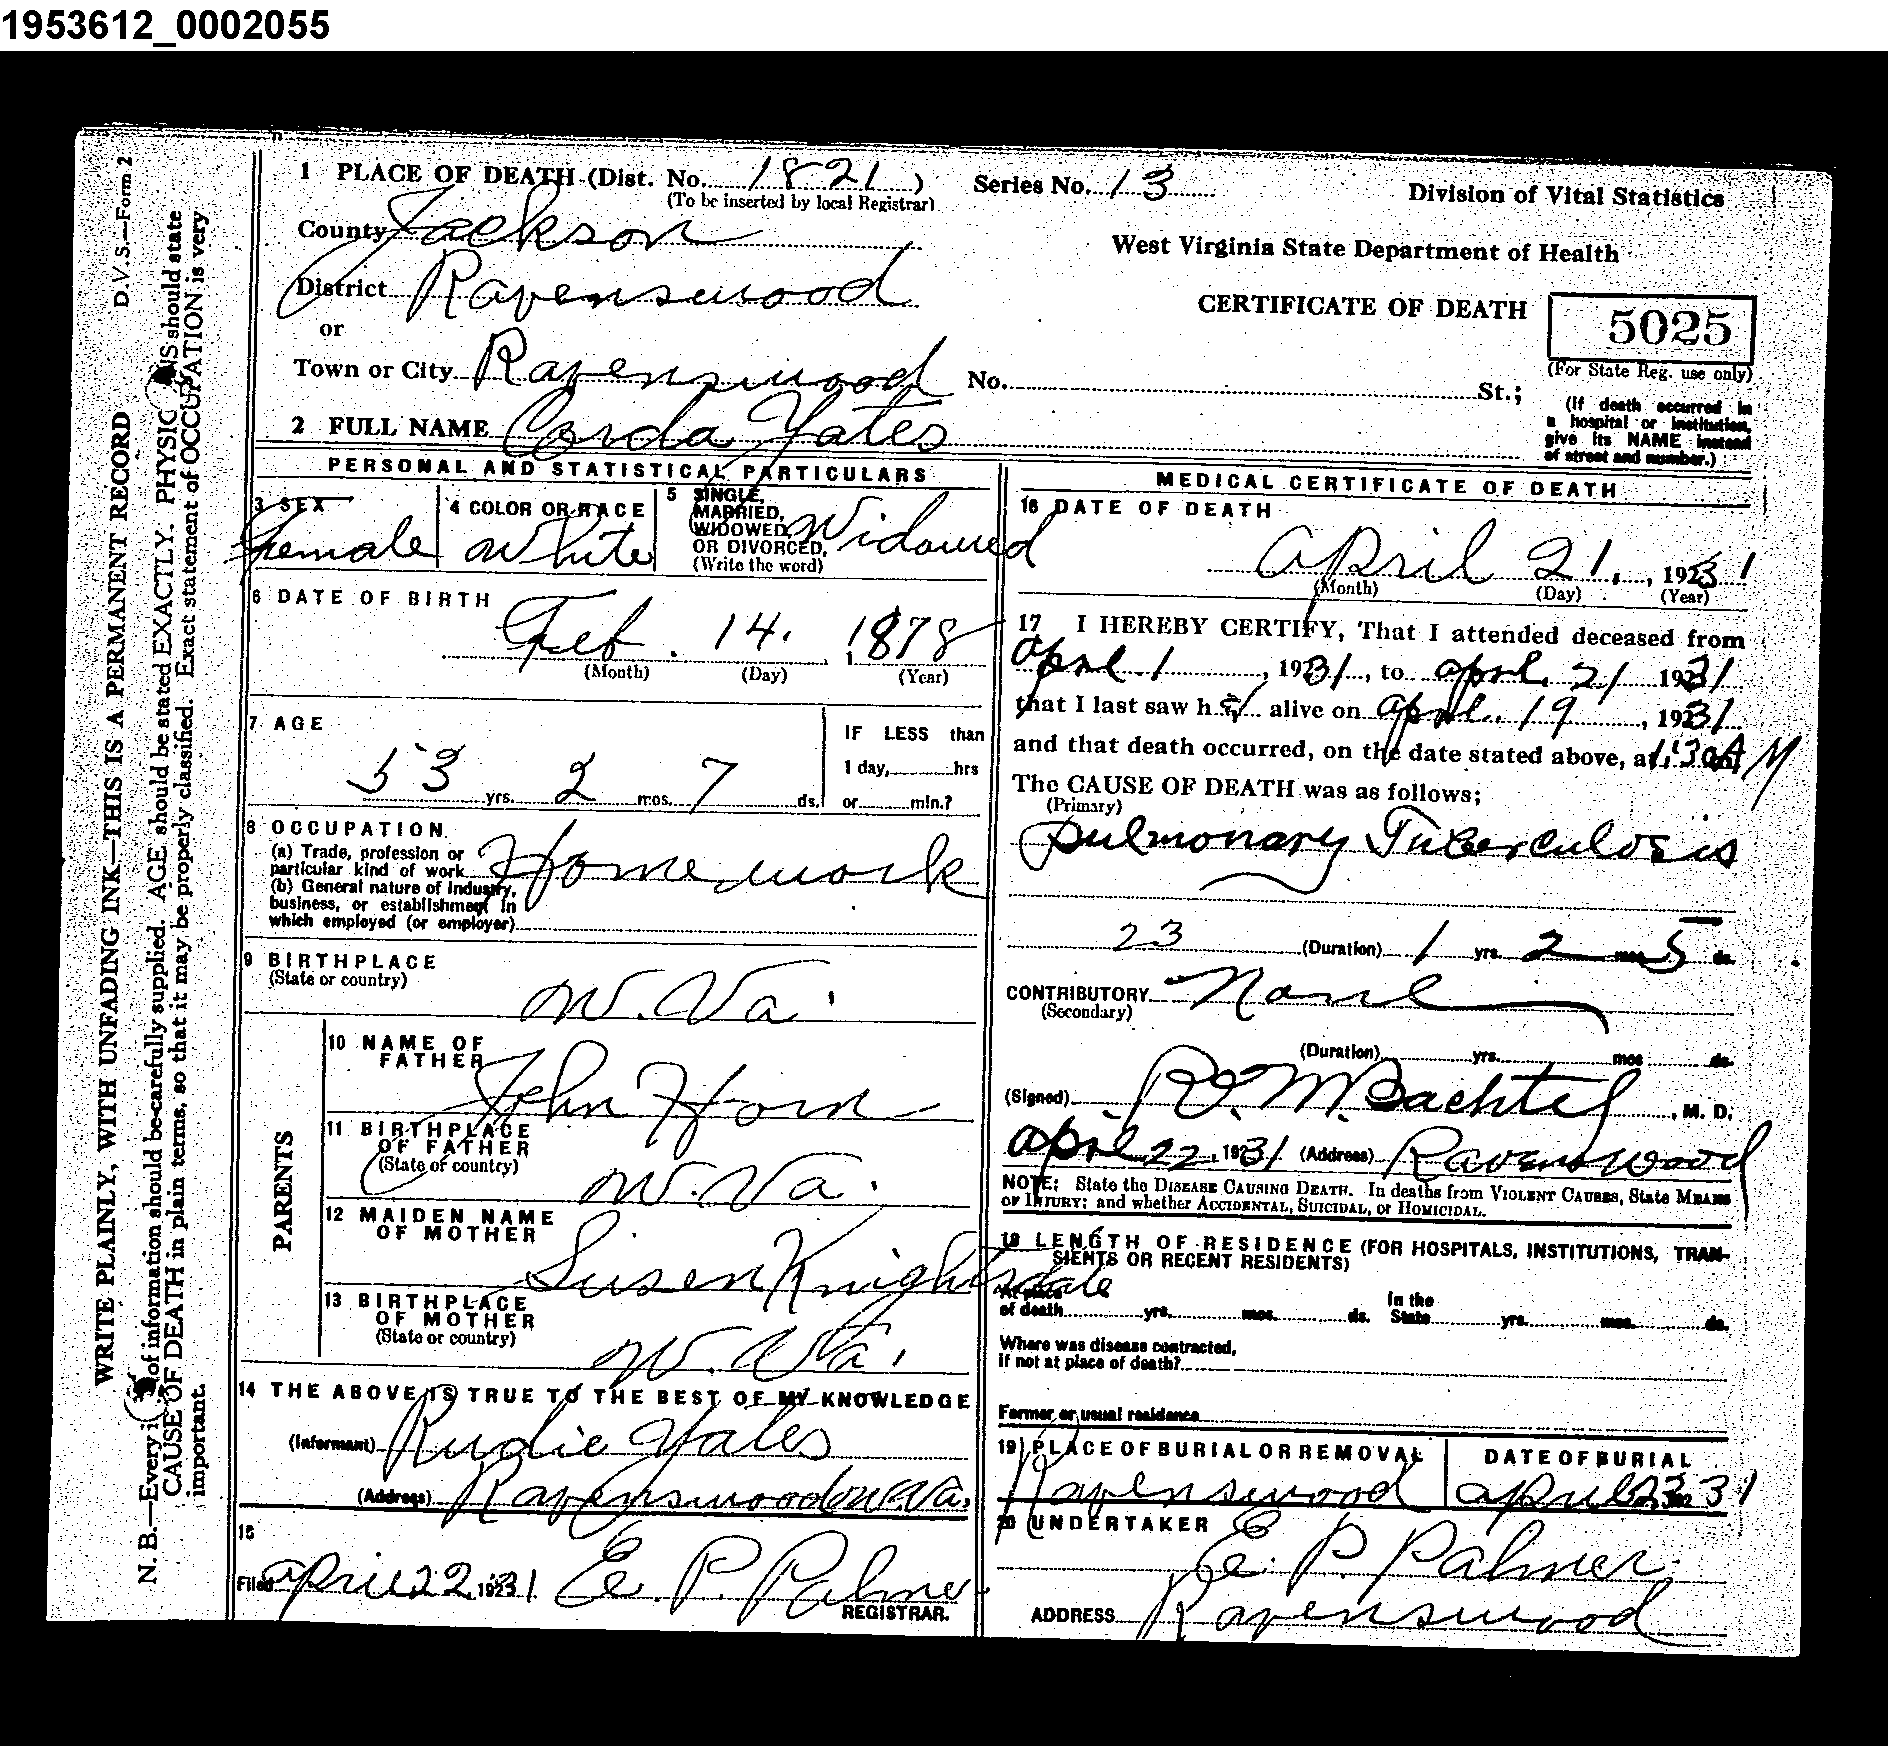 1953612_0002055
D.V.S.—Form 2
WRITE PLAINLY, WITH UNFADING INK—THIS IS A PERMANENT RECORD
N. B.—Every i of information should be carefully supplied. AGE should be stated EXACTLY. PHYSIC NS should state
CAUSE OF DEATH in plain terms, so that it may be properly classified. Exact statement of OCCUPATION is very
important.
1 PLACE OF DEATH (Dist. No. 1821) Series No. 13 Division of Vital Statistics
(To be inserted by local Registrar)
County Jackson
West Virginia State Department of Health
District Ravenswood
CERTIFICATE OF DEATH 5025
or
(For State Reg. use only)
Town or City Ravenswood No. St.;
(If death occurred in
a hospital or institution,
give its NAME instead
of street and number.)
2 FULL NAME Corda Yates
PERSONAL AND STATISTICAL PARTICULARS
3 SEX
Female
4 COLOR OR RACE
White
5 SINGLE,
MARRIED,
WIDOWED,
OR DIVORCED,
(Write the word)
Widowed
6 DATE OF BIRTH
Feb. 14. 1878
(Month) (Day) (Year)
7 AGE
53 yrs. 2 mos. 7 ds.
IF LESS than
1 day, hrs
or min.?
8 OCCUPATION
(a) Trade, profession or
particular kind of work Homework
(b) General nature of Industry,
business, or establishment in
which employed (or employer)
9 BIRTHPLACE
(State or country)
W. Va.
PARENTS
10 NAME OF
FATHER
John Horn
11 BIRTHPLACE
OF FATHER
(State or country)
W. Va.
12 MAIDEN NAME
OF MOTHER
Susen Knightsdale
13 BIRTHPLACE
OF MOTHER
(State or country)
W. Va.
14 THE ABOVE IS TRUE TO THE BEST OF MY KNOWLEDGE
(Informant) Rudie Yates
(Address) Ravenswood W Va.
15
Filed April 22 1931 E. P. Palmer
REGISTRAR.
MEDICAL CERTIFICATE OF DEATH
16 DATE OF DEATH
April 21, 1931
(Month) (Day) (Year)
17 I HEREBY CERTIFY, That I attended deceased from
April 1, 1931, to April 21 1931
that I last saw her alive on April 19, 1931
and that death occurred, on the date stated above, at 1:30 A M
The CAUSE OF DEATH was as follows;
(Primary)
Pulmonary Tuberculosis
23 (Duration) 1 yrs. 2 mos 5 ds.
CONTRIBUTORY None
(Secondary)
(Duration) yrs. mos ds.
(Signed) R. M. Bachtel, M. D.
April 22, 1931 (Address) Ravenswood
NOTE: State the DISEASE CAUSING DEATH. In deaths from VIOLENT CAUSES, State MEANS
OF INJURY; and whether ACCIDENTAL, SUICIDAL, or HOMICIDAL.
18 LENGTH OF RESIDENCE (FOR HOSPITALS, INSTITUTIONS, TRAN-
SIENTS OR RECENT RESIDENTS)
At place
of death yrs. mos. ds. In the
State yrs. mos. ds.
Where was disease contracted,
if not at place of death?
Former or usual residence
19 PLACE OF BURIAL OR REMOVAL
Ravenswood
DATE OF BURIAL
April 23 31
20 UNDERTAKER
E. P. Palmer
ADDRESS Ravenswood